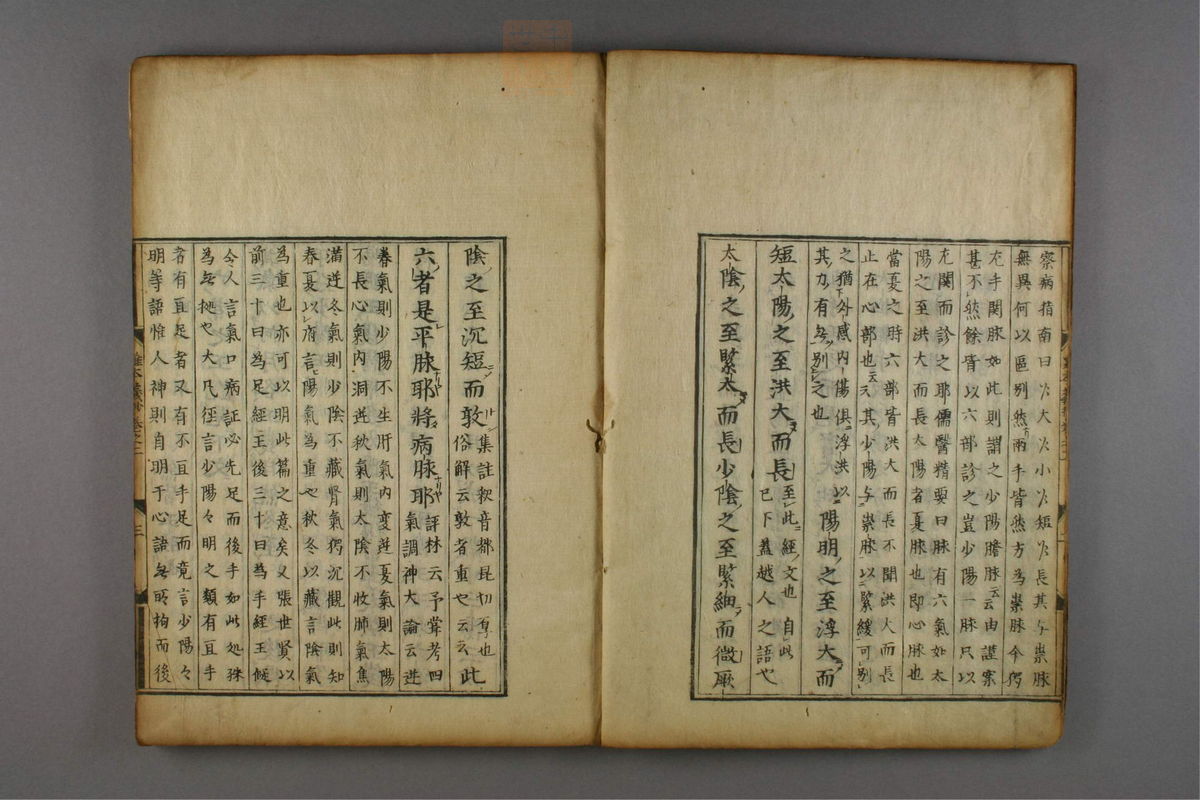 察病指南曰乍大乍小乍短乍長其与祟脉
無異何以區别然兩手皆然方為祟脉今獨
左手関脉如此則謂之少陽膽脉云云由謹案
甚不然餘皆以六部診之豈少陽一脉只以
左関而診之耶儒醫精要曰脉有六氣如太
陽之至洪大而長太陽者夏脉也即心脉也
當夏之時六部皆洪大而長不聞洪大而長
止在心部也云云其少陽与祟脉以緊緩可别
之猶外感内傷俱浮洪以
其力有無别之也
陽明之至浮大而
短太陽之至洪大而長
至此經文也 自此
已下蓋越人之語也
太陰之至緊大而長少陰之至緊細而微厥
陰之至沉短而敦
集註敦音都昆切厚也
俗解云敦者重也云云
此
六者是平脉耶將病脉耶
評林云予甞考四
氣調神大論云逆
春氣則少陽不生肝氣内變逆夏氣則太陽
不長心氣内洞逆秋氣則太陰不收肺氣焦
滿逆冬氣則少陰不藏腎氣獨沉觀此則知
春夏以府言陽氣為重也秋冬以藏言陰氣
為重也亦可以明此篇之意矣又張世賢以
前三十日為足經王後三十日為手經王候
令人言氣口病証必先足而後手如此処殊
為無拠也大凡徑言少陽々明之類有亘手
者有亘足者又有不亘手足而竟言少陽々
明等語惟人神則自明于心諸無所拘而後